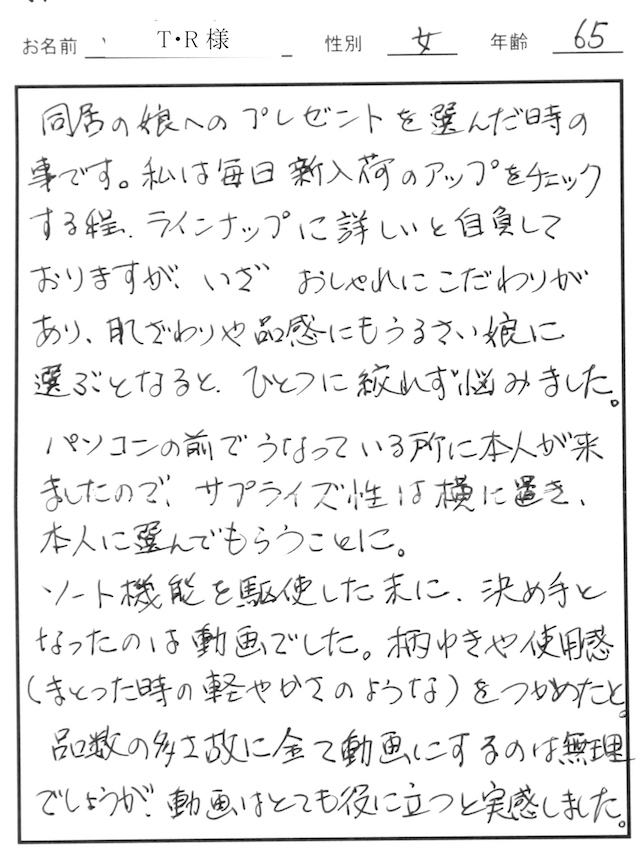 お名前 T・R 様 性別 女 年齢 65
同居の娘へのプレゼントを選んだ時の
事です。私は毎日新入荷のアップをチェック
する程、ラインナップに詳しいと自負して
おりますが、いざ おしゃれにこだわりが
あり、肌ざわりや品感にもうるさい娘に
選ぶとなると、ひとつに絞れず悩みました。
パソコンの前でうなっている所に本人が来
ましたので、サプライズ性は横に置き、
本人に選んでもらうことに。
ソート機能を駆使した末に、決め手と
なったのは動画でした。柄ゆきや使用感
(まとった時の軽やかさのような)をつかめたと。
品数の多さ故に全て動画にするのは無理
でしょうが、動画はとても役に立つと実感しました。